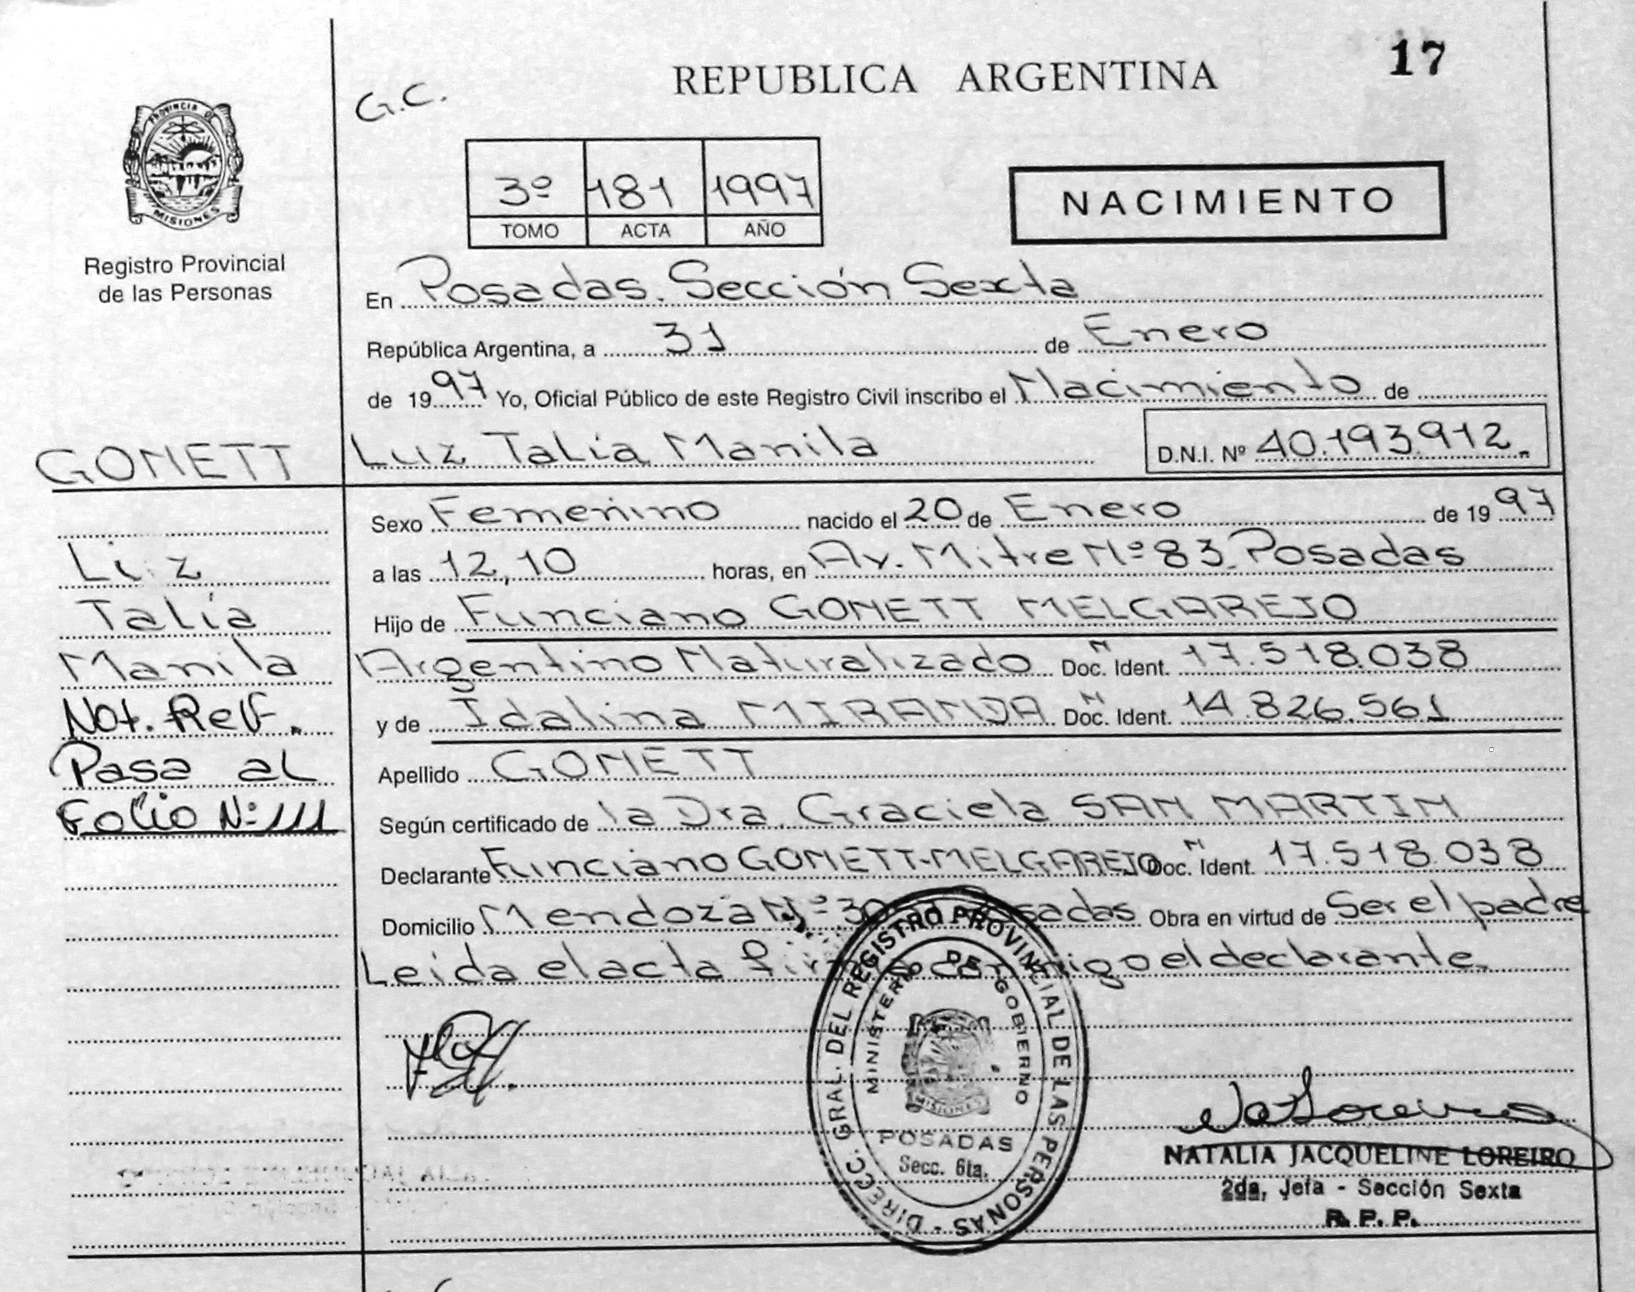 17
REPUBLICA ARGENTINA
G.C.
PROVINCIA DE
MISIONES
Registro Provincial
de las Personas
3º 181 1997
TOMO ACTA AÑO
NACIMIENTO
En Posadas. Sección Sexta
República Argentina, a 31 de Enero
de 1997 Yo, Oficial Público de este Registro Civil inscribo el Nacimiento de
Luz Talía Manila D.N.I. Nº 40.193.912.
GONETT
Sexo Femenino nacido el 20 de Enero de 1997
a las 12,10 horas, en Av. Mitre Nº 83. Posadas
Hijo de Funciano GONETT MELGAREJO
Argentino Naturalizado Doc. N Ident. 17.518.038
y de Idalina MIRANDA Doc. N Ident. 14.826.561
Apellido GONETT
Según certificado de la Dra. Graciela SAN MARTIN
Declarante Funciano GONETT-MELGAREJO Doc. N Ident. 17.518.038
Domicilio Mendoza Nº Posadas Obra en virtud de Ser el padre
Leida el acta firma conmigo el declarante.
Luz
Talía
Manila
Not. Ref.
Pasa al
Folio Nº 111
DIREC. GRAL. DEL REGISTRO PROVINCIAL DE LAS PERSONAS -
MINISTERIO DE GOBIERNO
MISIONES
POSADAS
Secc. 6ta.
NATALIA JACQUELINE LOREIRO
2da. Jefa - Sección Sexta
R. P. P.